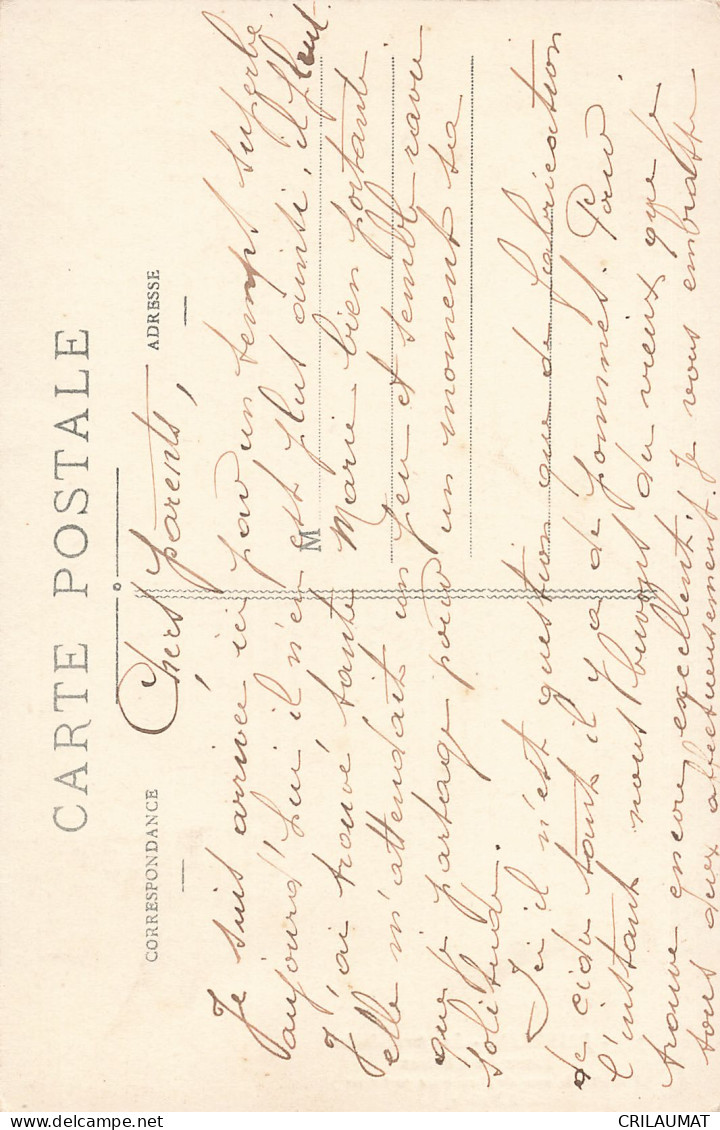 CARTE POSTALE
CORRESPONDANCE
ADRESSE
M
Chers parents,
Je suis arrivée ici par un temps superbe.
aujourd'hui il n'en est plus ainsi, il pleut.
J'ai trouvé tante Marie bien portante
elle m'attendait un peu et semble ravie
que je partage pour un moment sa
solitude.
Ici il n'est question que de fabrication
de cidre tant il y a de pommes. Pour
l'instant nous buvons du vieux que je
trouve encore excellent. Je vous embrasse
tous deux affectueusement.
CRILAUMAT